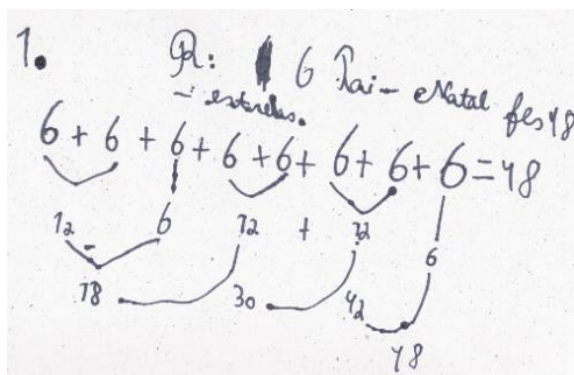 1.
R: 6 Pai-Natal fes 48
- estrelas.
6 + 6 + 6 + 6 + 6 + 6 + 6 + 6 = 48
12 6 12 + 12 6
18 30 42
48